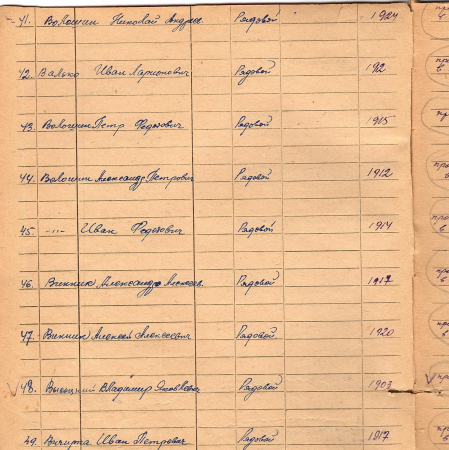 41. Волошин Николай Андреев. Рядовой 1924
42. Валько Иван Ларионович Рядовой 192
43. Волошин Петр Федотович Рядовой 1915
44. Волошин Александр Петрович Рядовой 1912
45. -"- Иван Федотович Рядовой 1914
46. Винник Александр Алексеев. Рядовой 1917
47. Винник Алексей Алексеевич Рядовой. 1920
48. Высоцкий Владимир Яковлевич Рядовой 1903
49. Вичирта Иван Петрович Рядовой 1917